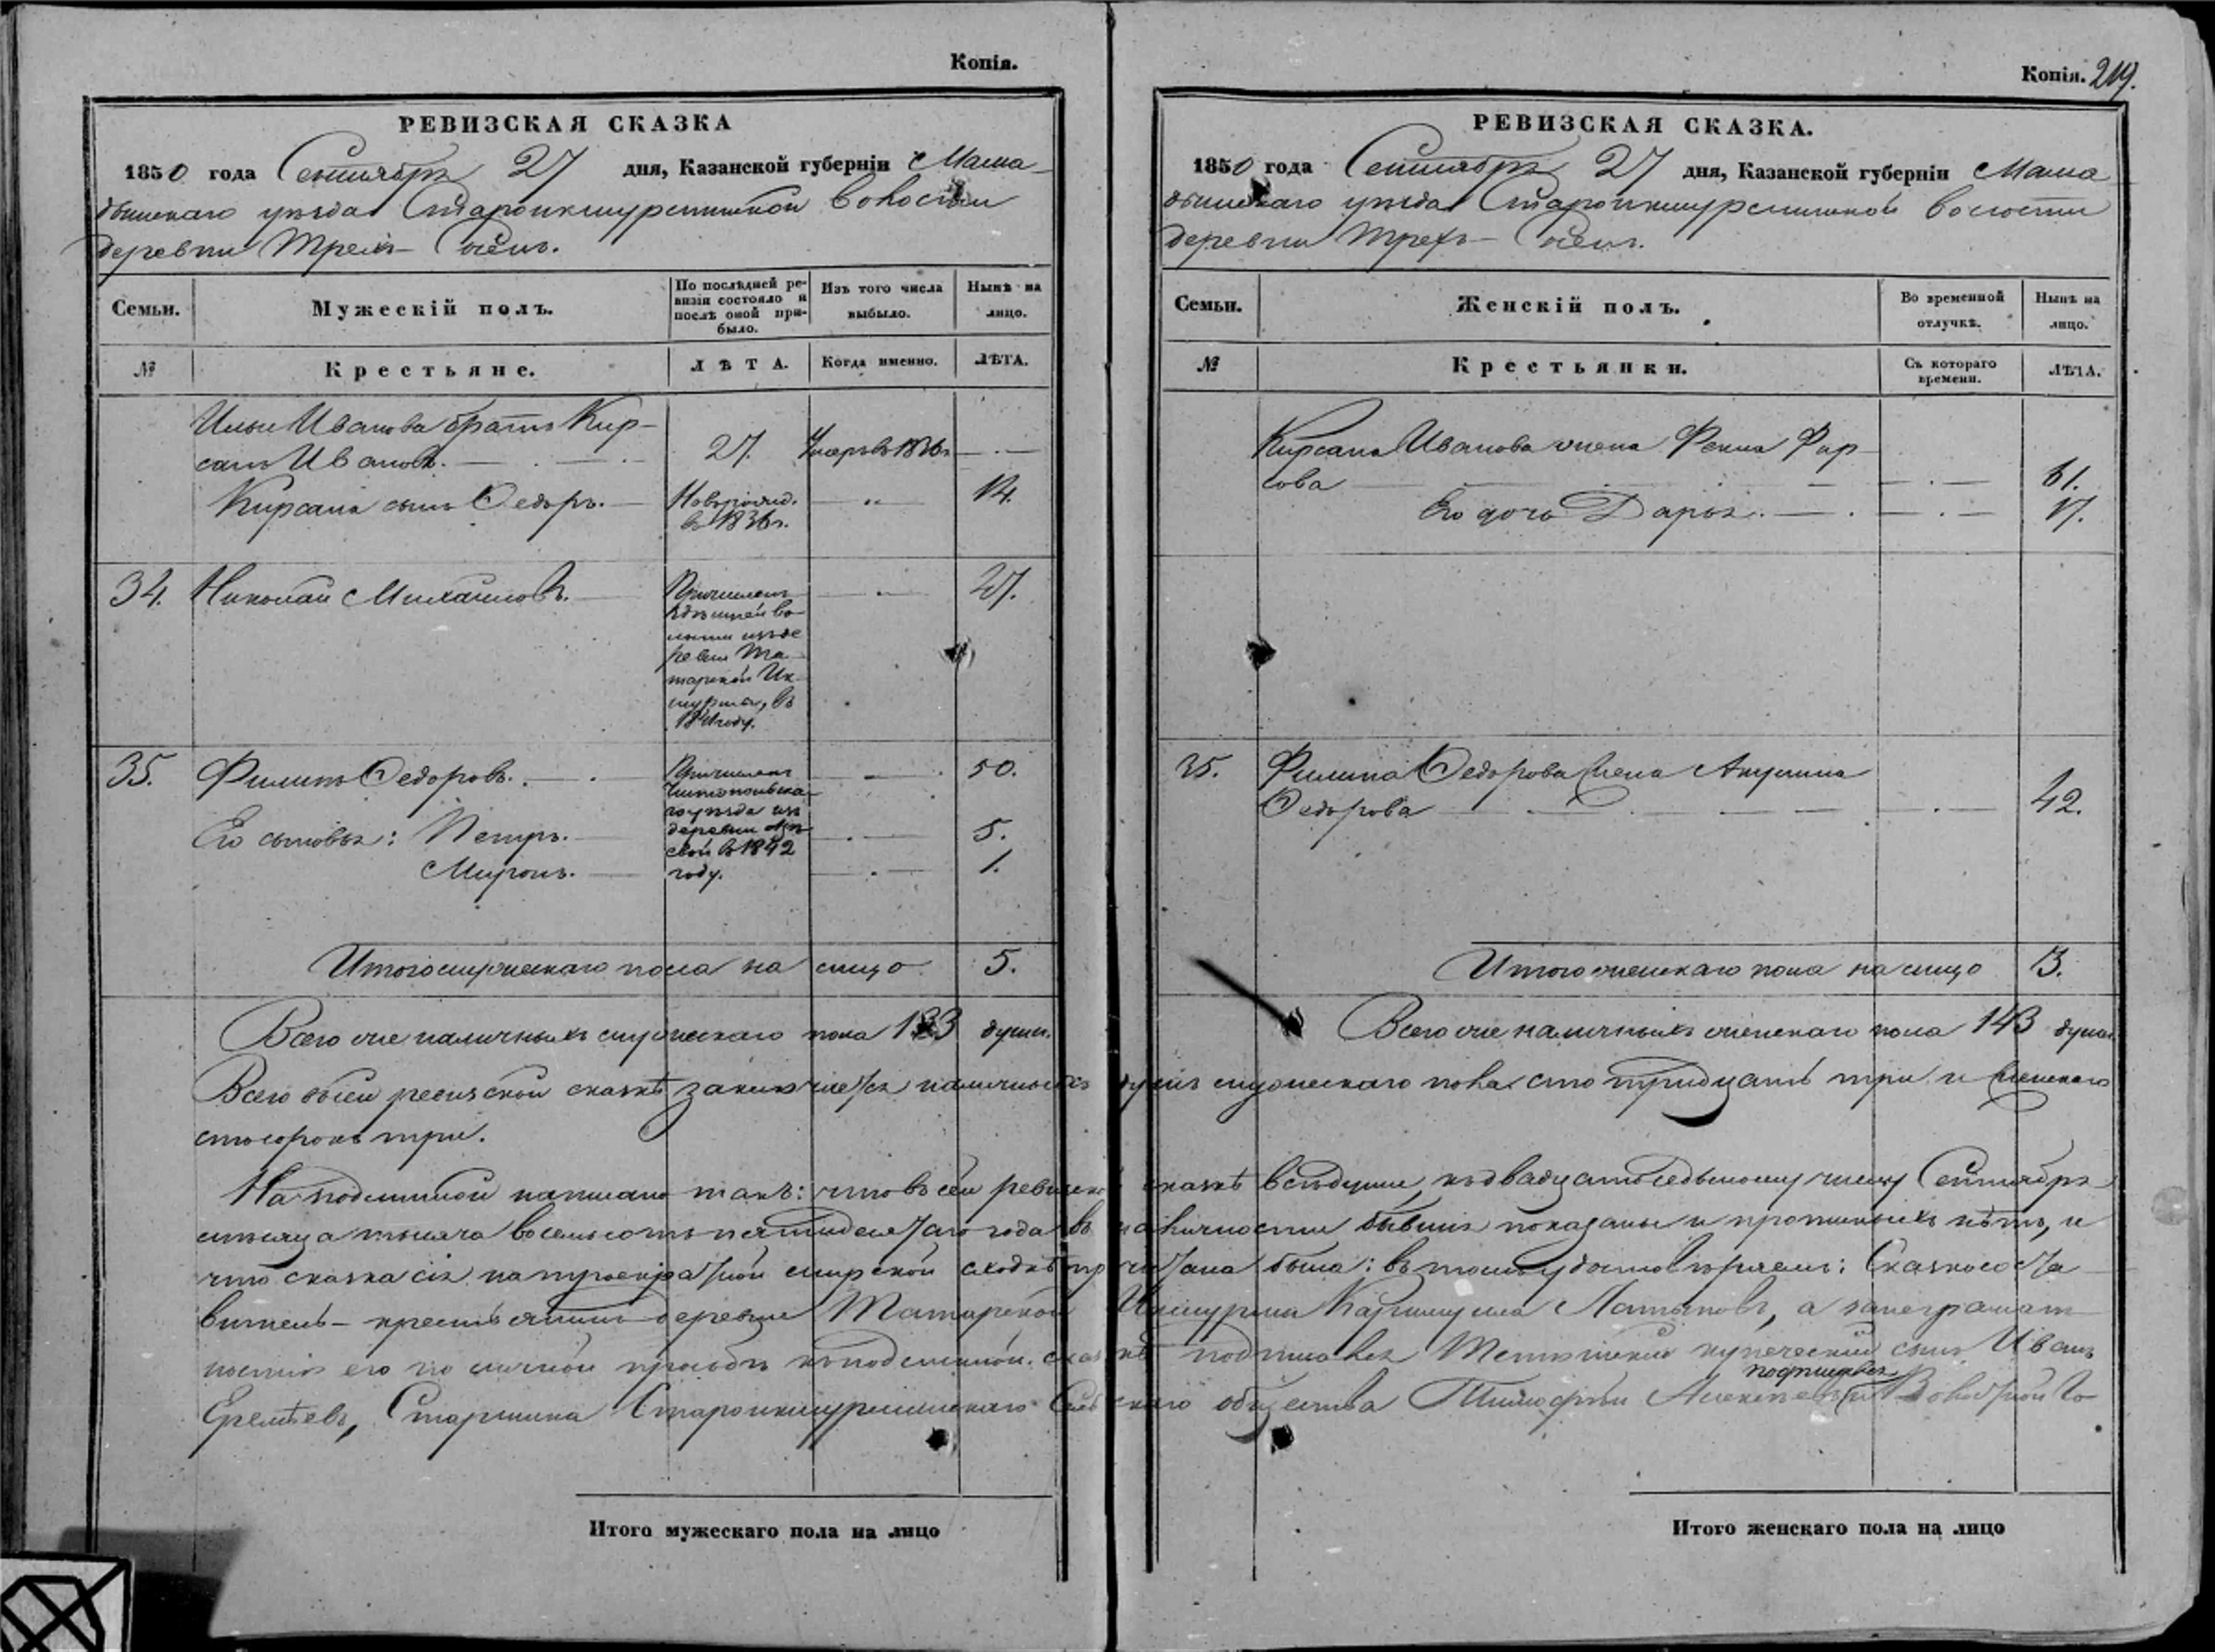 Копія.
РЕВИЗСКАЯ СКАЗКА
1850 года Сентября 27 дня, Казанской губерніи Мама-
дышскаго уѣзда Староикшурминской волости
деревни Трехъ-Соснъ.
Семьи.
Мужескій полъ.
По послѣдней ре-
визіи состояло и
послѣ оной при-
было.
Изъ того числа
выбыло.
Нынѣ на
лицо.
№
Крестьяне.
ЛѢТА.
Когда именно.
ЛѢТА.
Ильи Иванова братъ Кир-
санъ Ивановъ. 27. Умеръ въ 1836
Кирсана сынъ Ѳедоръ. Новорожд. 14.
въ 1836 г.
34. Николай Михайловъ. Причисленъ 27.
здѣшней во-
лости изъ де
ревни Та-
тарской Ик-
шурмы, въ
году.
35. Филипъ Ѳедоровъ. Причисленъ 50.
Чистопольска-
го уѣзда изъ
деревни
въ 1842
году.
Его сыновья: Петръ. 5.
Миронъ. 1.
Итого мужескаго пола на лицо 5.
Всего же наличныхъ мужескаго пола 133 души.
Итого мужескаго пола на лицо
Копія. 219.
РЕВИЗСКАЯ СКАЗКА.
1850 года Сентября 27 дня, Казанской губерніи Мама
дышскаго уѣзда Староикшурминской волости
деревни Трехъ-Соснъ.
Семьи.
Женскій полъ.
Во временной
отлучкѣ.
Нынѣ на
лицо.
№
Крестьянки.
Съ котораго
времени.
ЛѢТА.
Кирсана Иванова жена
61.
Его дочь Дарья. 17.
35. Филипа Ѳедорова жена Акулина
Ѳедорова 42.
Итого женскаго пола на лицо 3.
Всего же наличныхъ женскаго пола 143 души.
Всего въ сей ревизской сказкѣ заключается наличныхъ душъ мужескаго пола сто тридцать три и женскаго
сто сорокъ три.
На подлинной написано такъ: что въ сей ревизской сказкѣ всѣ души, къ двадцать седьмому числу Сентября
мѣсяца тысяча восемьсотъ пятидесятаго года въ наличности бывшія показаны и прописныхъ нѣтъ, и
что сказка сія на троекратной мирской сходкѣ прочитана была: въ томъ удостовѣряемъ: Сказкососта
витель-крестьянинъ деревни Татарской Икшурмы Латыповъ, а за неграмот
ностію его по личной прозьбѣ къ подлинной сказкѣ подписался Тетюшскій купеческій сынъ Иванъ
подписался
Еремѣевъ, Старшина Староикшурминскаго Сельскаго общества Тимофѣй Алексѣевъ и Волостной Го
Итого женскаго пола на лицо